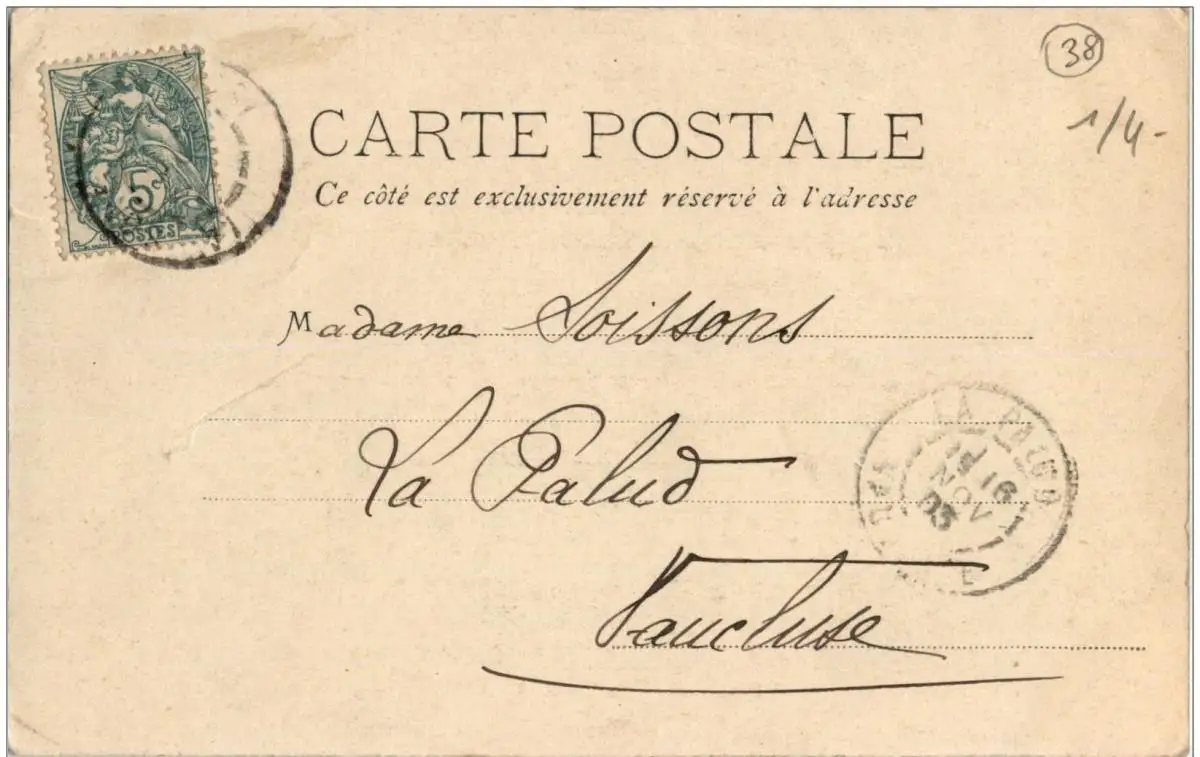 38
1/4-
CARTE POSTALE
Ce côté est exclusivement réservé à l'adresse
5c
POSTES
Madame Soissons
La Palud
Vaucluse
LA PALUD
16
NOV
03